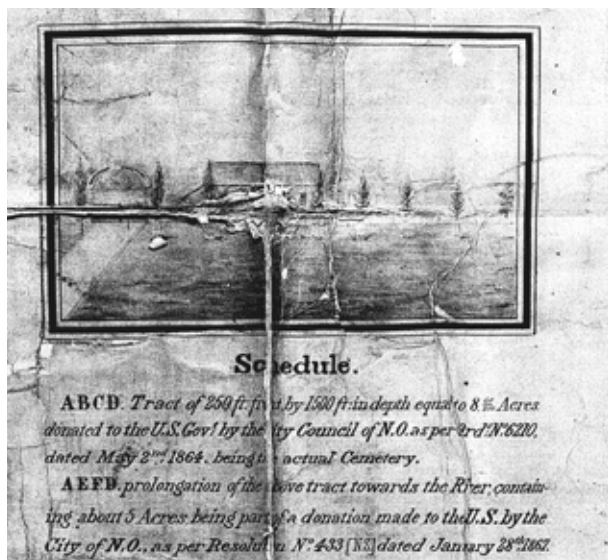 Schedule.
ABCD. Tract of 250 ft. front, by 1500 ft: in depth equal to 8. Acres
donated to the U.S. Govt by the City Council of N.O. as per Ord: No 6210,
dated May 2nd 1864. being the actual Cemetery.
AEFD. prolongation of the above tract towards the River, contain-
ing about 5 Acres being part of a donation made to the U.S. by the
City of N.O., as per Resolution No. 433 [N.S.] dated January 28th 1867.